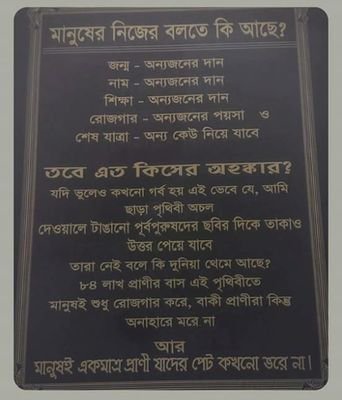 মানুষের নিজের বলতে কি আছে?
জন্ম - অন্যজনের দান
নাম - অন্যজনের দান
শিক্ষা - অন্যজনের দান
রোজগার - অন্যজনের পয়সা ও
শেষ যাত্রা - অন্য কেউ নিয়ে যাবে
তবে এত কিসের অহঙ্কার?
যদি ভুলেও কখনো গর্ব হয় এই ভেবে যে, আমি
ছাড়া পৃথিবী অচল
দেওয়ালে টাঙানো পূর্বপুরুষদের ছবির দিকে তাকাও
উত্তর পেয়ে যাবে
তারা নেই বলে কি দুনিয়া থেমে আছে?
৮৪ লাখ প্রাণীর বাস এই পৃথিবীতে
মানুষই শুধু রোজগার করে, বাকী প্রাণীরা কিন্তু
অনাহারে মরে না
আর
মানুষই একমাত্র প্রাণী যাদের পেট কখনো ভরে না।